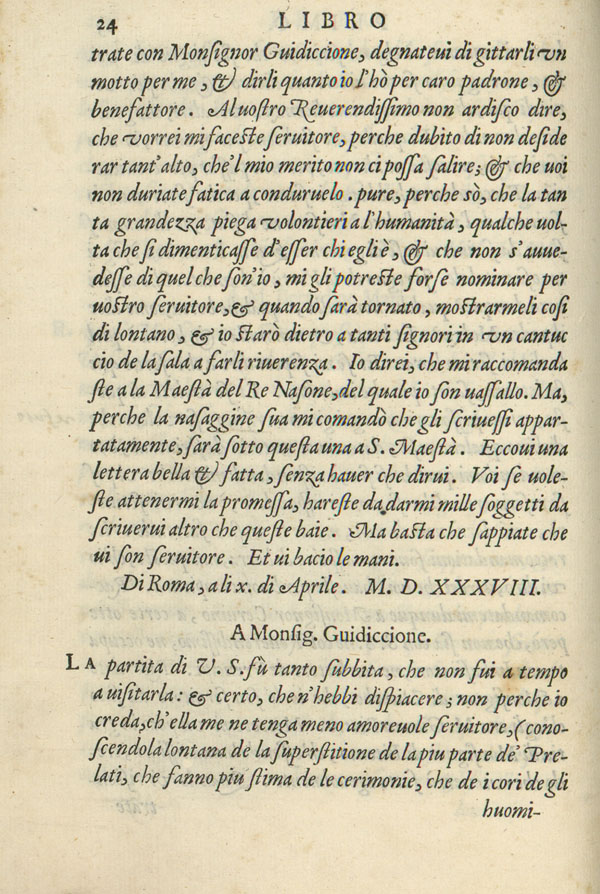 24 LIBRO
trate con Monsignor Guidiccione, degnateui di gittarli vn
motto per me, & dirli quanto io l'hò per caro padrone, &
benefattore. Al uostro Reuerendissimo non ardisco dire,
che vorrei mi faceste seruitore, perche dubito di non deside
rar tant'alto, che'l mio merito non ci possa salire; & che uoi
non duriate fatica a conduruelo. pure, perche sò, che la tan
ta grandezza piega volontieri a l'humanità, qualche uol-
ta che si dimenticasse d'esser chi egli è, & che non s'auue-
desse di quel che son'io, mi gli potreste forse nominare per
uostro seruitore, & quando sarà tornato, mostrarmeli cosi
di lontano, & io starò dietro a tanti signori in vn cantuc
cio de la sala a farli riuerenza. Io direi, che mi raccomanda
ste a la Maestà del Re Nasone, del quale io son uassallo. Ma,
perche la nasaggine sua mi comandò che gli scriuessi appar-
tatamente, sarà sotto questa una a S. Maestà. Eccoui una
lettera bella & fatta, senza hauer che dirui. Voi se uole-
ste attenermi la promessa, hareste da darmi mille soggetti da
scriuerui altro che queste baie. Ma basta che sappiate che
ui son seruitore. Et ui bacio le mani.
Di Roma, a li x. di Aprile. M. D. XXXVIII.
A Monsig. Guidiccione.
LA partita di V. S. fù tanto subbita, che non fui a tempo
a uisitarla: & certo, che n'hebbi dispiacere; non perche io
creda, ch'ella me ne tenga meno amoreuole seruitore, (cono-
scendola lontana de la superstitione de la piu parte de' Pre-
lati, che fanno piu stima de le cerimonie, che de i cori de gli
huomi-